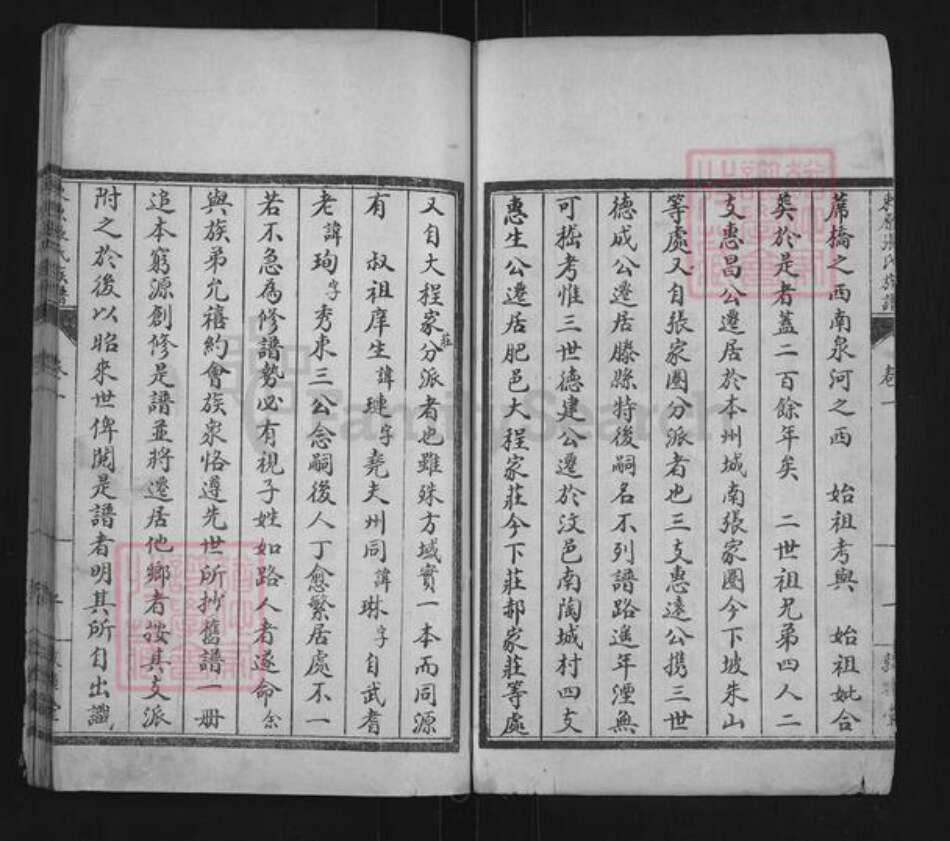 蓆橋之西南泉河之西 始祖考與 始祖妣合
葬於是者蓋二百餘年矣 二世祖兄弟四人二
支惠昌公遷居於本州城南張家圈今下坡朱山
等處又自張家圈分派者也三支惠遠公携三世
德成公遷居滕縣特後嗣名不列譜路遥年湮無
可稽考惟三世德建公遷於汶邑南陶城村四支
惠生公遷居肥邑大程家莊今下莊郝家莊等處
又自大程家莊分派者也雖殊方域實一本而同源
有 叔祖庠生諱璉字堯夫州同諱琳字自武耆
老諱珣字秀東三公念嗣後人丁愈繁居處不一
若不急為修譜勢必有視子姓如路人者遂命余
與族弟允禧約會族衆恪遵先世所抄舊譜一册
追本窮源創修是譜並將遷居他鄉者按其支派
附之於後以昭來世俾閱是譜者明其所自出識
FamilySearch